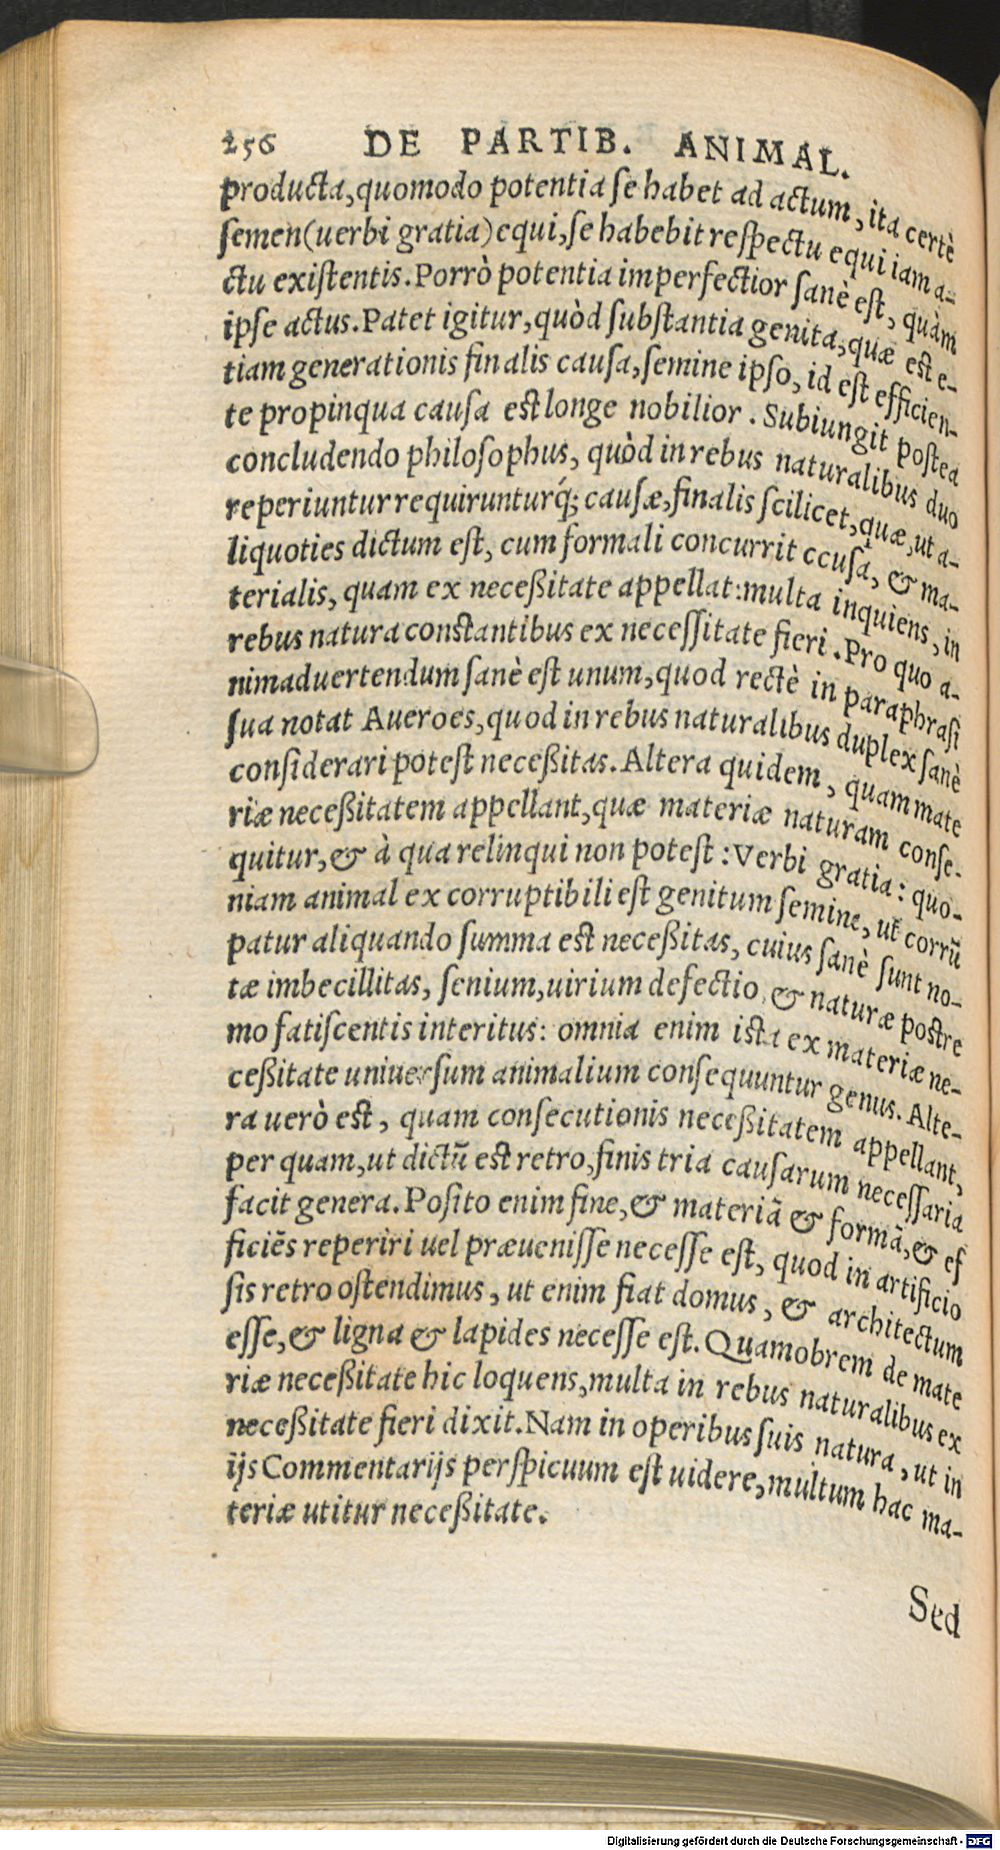 256 DE PARTIB. ANIMAL.
producta, quomodo potentia se habet ad actum, ita certè
semen (uerbi gratia) equi, se habebit respectu equi iam a-
ctu existentis. Porrò potentia imperfectior sanè est, quàm
ipse actus. Patet igitur, quòd substantia genita, quæ est e-
tiam generationis finalis causa, semine ipso, id est efficien-
te propinqua causa est longe nobilior. Subiungit postea
concludendo philosophus, quòd in rebus naturalibus duo
reperiuntur requirunturq́; causæ, finalis scilicet, quæ, ut a-
liquoties dictum est, cum formali concurrit ccusa, & ma-
terialis, quam ex neceßitate appellat: multa inquiens, in
rebus natura constantibus ex necessitate fieri. Pro quo a-
nimaduertendum sanè est unum, quod rectè in paraphrasi
sua notat Aueroes, quod in rebus naturalibus duplex sanè
considerari potest neceßitas. Altera quidem, quam mate
riæ neceßitatem appellant, quæ materiæ naturam conse-
quitur, & à qua relinqui non potest: Verbi gratia: quo-
niam animal ex corruptibili est genitum semine, ut corrũ
patur aliquando summa est neceßitas, cuius sanè sunt no-
tæ imbecillitas, senium, uirium defectio, & naturæ postre
mo fatiscentis interitus: omnia enim ista ex materiæ ne-
ceßitate uniuersum animalium consequuntur genus. Alte-
ra uerò est, quam consecutionis neceßitatem appellant,
per quam, ut dictũ est retro, finis tria causarum necessaria
facit genera. Posito enim fine, & materiã & formã, & ef
ficiẽs reperiri uel præuenisse necesse est, quod in artificio
sis retro ostendimus, ut enim fiat domus, & architectum
esse, & ligna & lapides necesse est. Quamobrem de mate
riæ neceßitate hic loquens, multa in rebus naturalibus ex
neceßitate fieri dixit. Nam in operibus suis natura, ut in
ijs Commentarijs perspicuum est uidere, multum hac ma-
teriæ utitur neceßitate.
Sed
Digitalisierung gefördert durch die Deutsche Forschungsgemeinschaft - DFG